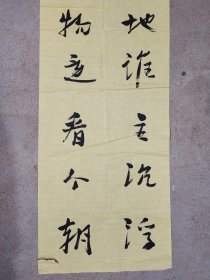 地谁主沉浮
物还看今朝